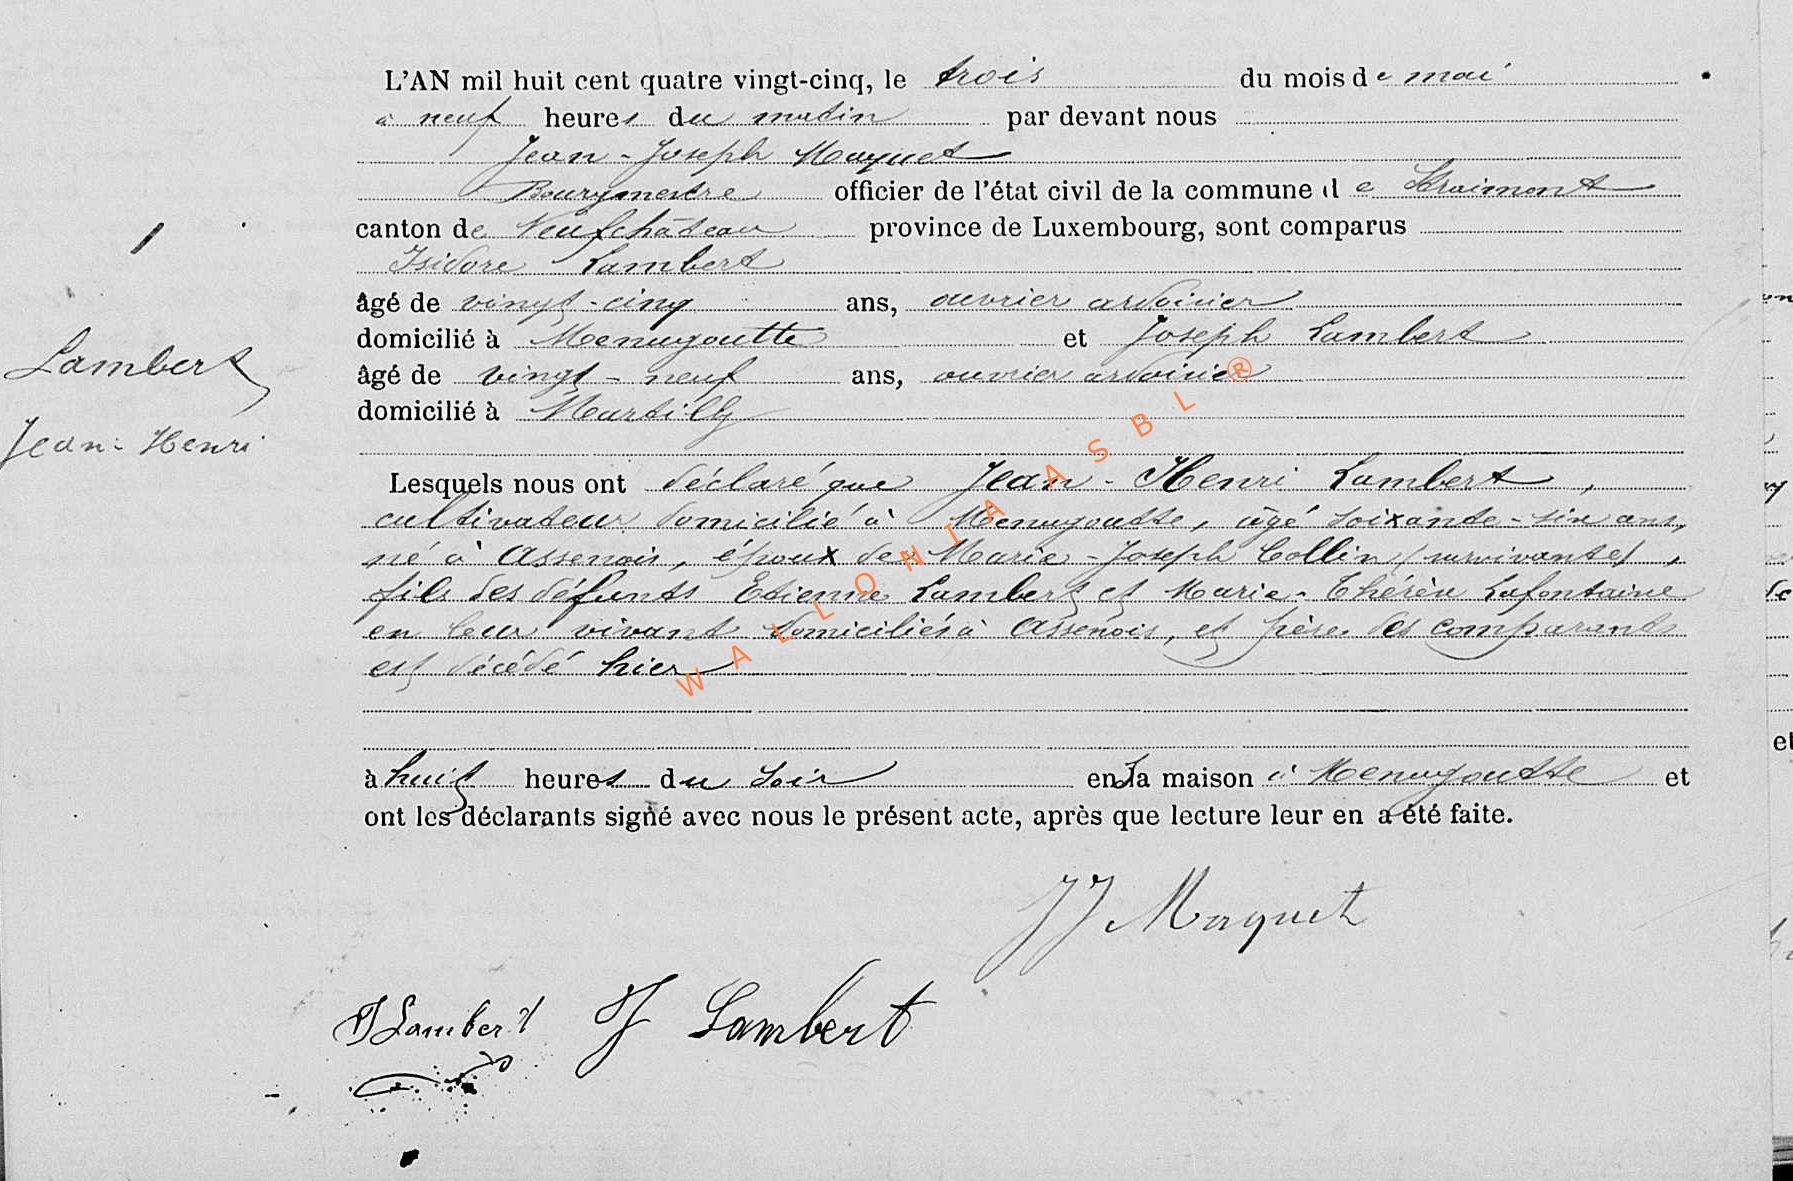 L'AN mil huit cent quatre vingt-cinq, le trois du mois de mai
à neuf heures du matin par devant nous
Jean-Joseph Maquet
Bourgmestre officier de l'état civil de la commune de Straimont
canton de Neufchâteau province de Luxembourg, sont comparus
Isidore Lambert
âgé de vingt-cinq ans, ouvrier ardoisier
domicilié à Menugoutte et Joseph Lambert
âgé de vingt-neuf ans, ouvrier ardoisier
domicilié à Martilly
Lambert
Jean-Henri
Lesquels nous ont déclaré que Jean-Henri Lambert,
cultivateur domicilié à Menugoutte, âgé soixante-six ans,
né à Assenois, époux de Marie-Joseph Collin (survivante),
fils des défunts Etienne Lambert et Marie-Thérèse Lafontaine
en leur vivant domiciliés à Assenois, et père des comparants
est décédé hier
à huit heures du soir en sa maison à Menugoutte et
ont les déclarants signé avec nous le présent acte, après que lecture leur en a été faite.
JJ Maquet
J Lambert J Lambert
WALLONIA ASBL ®